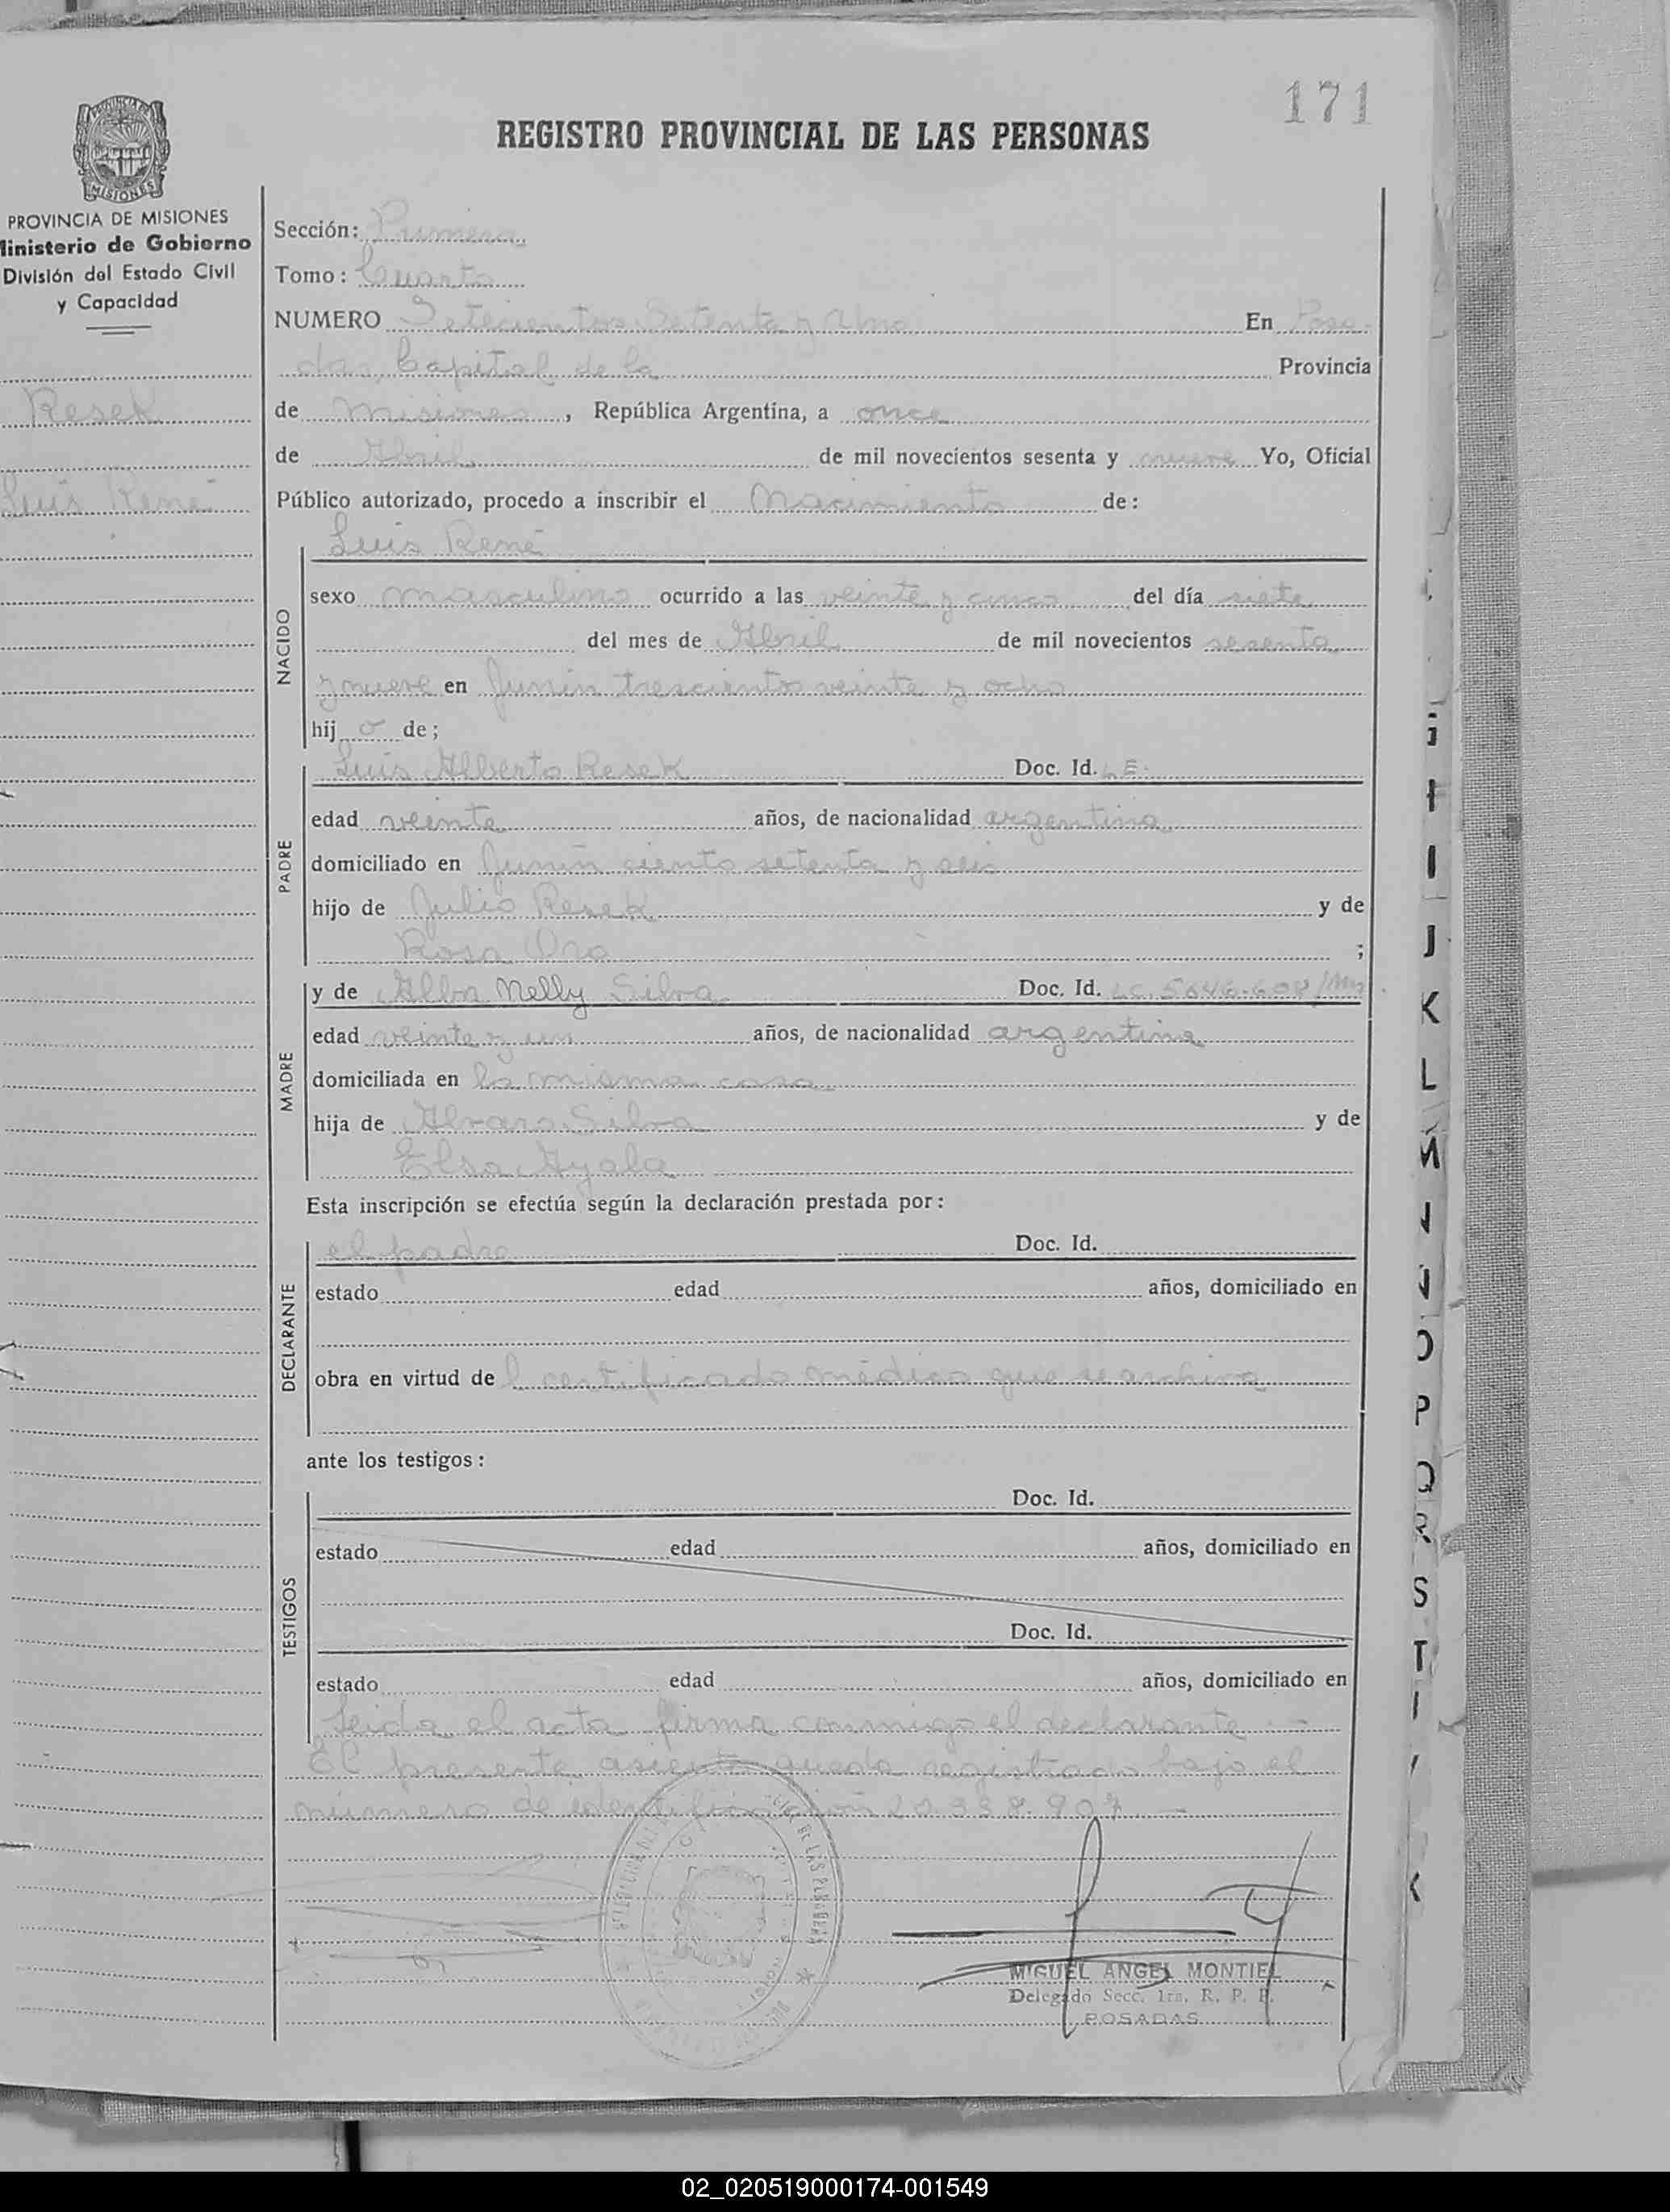 171
REGISTRO PROVINCIAL DE LAS PERSONAS
PROVINCIA DE MISIONES
Ministerio de Gobierno
División del Estado Civil
y Capacidad
Resek
Luis René
Sección: Primera
Tomo: Cuarto
NUMERO Setecientos Setenta y Uno En Posa-
das, Capital de la Provincia
de Misiones, República Argentina, a once
de Abril de mil novecientos sesenta y nueve Yo, Oficial
Público autorizado, procedo a inscribir el Nacimiento de:
Luis René
NACIDO
sexo masculino ocurrido a las veinte y cinco del día siete
del mes de Abril de mil novecientos sesenta
y nueve en Junín trescientos veinte y ocho
hij o de;
Luis Alberto Resek Doc. Id. L E.
PADRE
edad veinte años, de nacionalidad argentina
domiciliado en Junín ciento setenta y seis
hijo de Julio Resek y de
Rosa ;
y de Alba Nelly Silva Doc. Id. LC. 5646.608
MADRE
edad veinte y un años, de nacionalidad argentina
domiciliada en la misma casa
hija de Alvaro Silva y de
Elsa Ayala
Esta inscripción se efectúa según la declaración prestada por:
el padre Doc. Id.
DECLARANTE
estado edad años, domiciliado en
obra en virtud de l certificado médico que se archiva
ante los testigos:
Doc. Id.
TESTIGOS
estado edad años, domiciliado en
Doc. Id.
estado edad años, domiciliado en
Leida el acta firma conmigo el declarante.-
El presente asiento queda registrado bajo el
número de identificación 20.338.907.-
DE LAS PERSONAS
MIGUEL ANGEL MONTIEL
Delegado Secc. 1ra. R. P. P.
POSADAS
J
K
L
O
P
Q
R
S
T
02_020519000174-001549